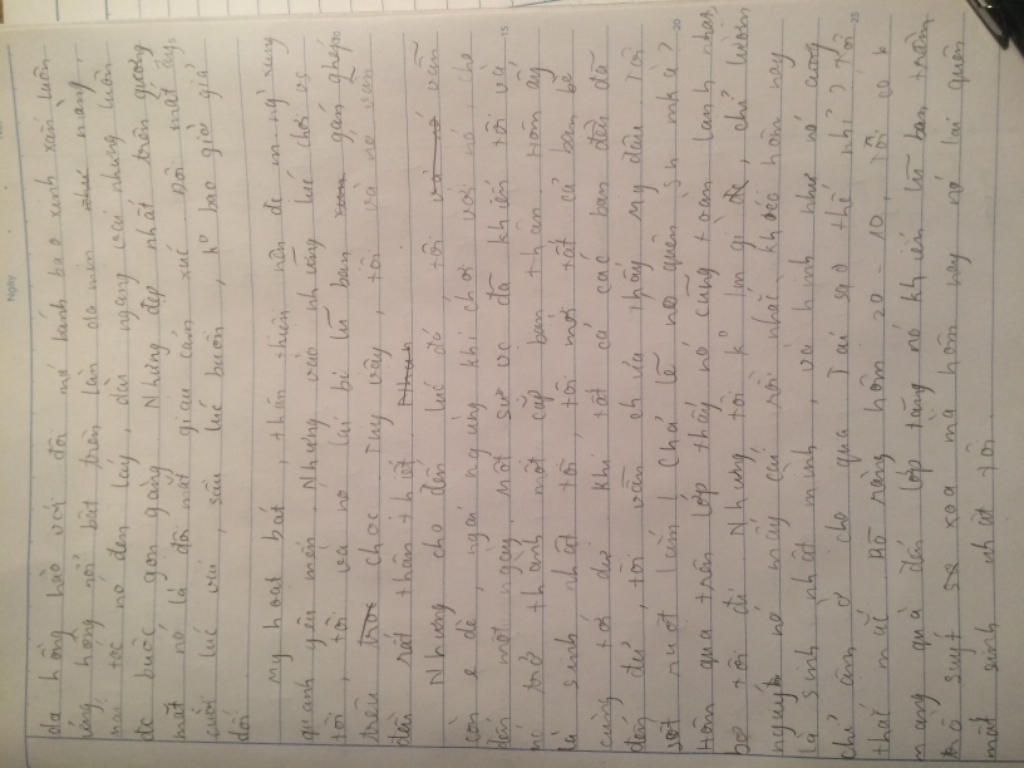 Ngày
da hồng hào với đôi má bánh bao xinh xắn luôn
ửng hồng nổi bật trên làn da mịn nàng.
mái tóc nó đen láy, dài ngang vai nhưng luôn
đc buộc gọn gàng. Nhưng đẹp nhất trên gương
mặt nó là đôi mắt giàu cảm xúc. Đôi mắt ấy
lúc vui, sầu lúc buồn, k bao giờ giả
dối
My hoạt bát, thân thiện nên đc m.ng xung
quanh yêu mến. Nhưng vào những lúc chơi vs
tôi, tôi và nó lại bị lũ bạn gán ghép
trêu chọc. Tuy vậy, tôi và nó vẫn
rất thân thiết.
Nhưng cho đến lúc đó tôi vẫn
còn e dè, ngại ngùng khi chơi với nó, cho
đến một ngày, một sự vc đã khiến tôi và
nó trở thành một cặp bạn thân. Hôm ấy
là sinh nhật tôi, tôi mời tất cả bạn bè
cùng tới dự khi tất cả các bạn đều đã
đến đủ, tôi vẫn chưa thấy My đâu. Tôi
sốt ruột lắm! Chả lẽ nó quên sn mk à?
Hôm qua trên lớp thấy nó cũng toàn lảnh
tôi đi. Nhưng tôi k làm gì, chỉ luôn
nó mấy cái rồi nhắc khéo hôm nay
là sinh nhật mình, và hình như nó cũng
chỉ ậm ờ cho qua. Tại sao thế nhỉ? Tôi
thắc mắc. Rõ ràng hôm 20 - 10, tôi có
mang quà đến lớp tặng nó khiến lũ bạn trầm
trồ suýt xoa mà hôm nay nó lại quên
mất sinh nhật tôi.
15
20
25